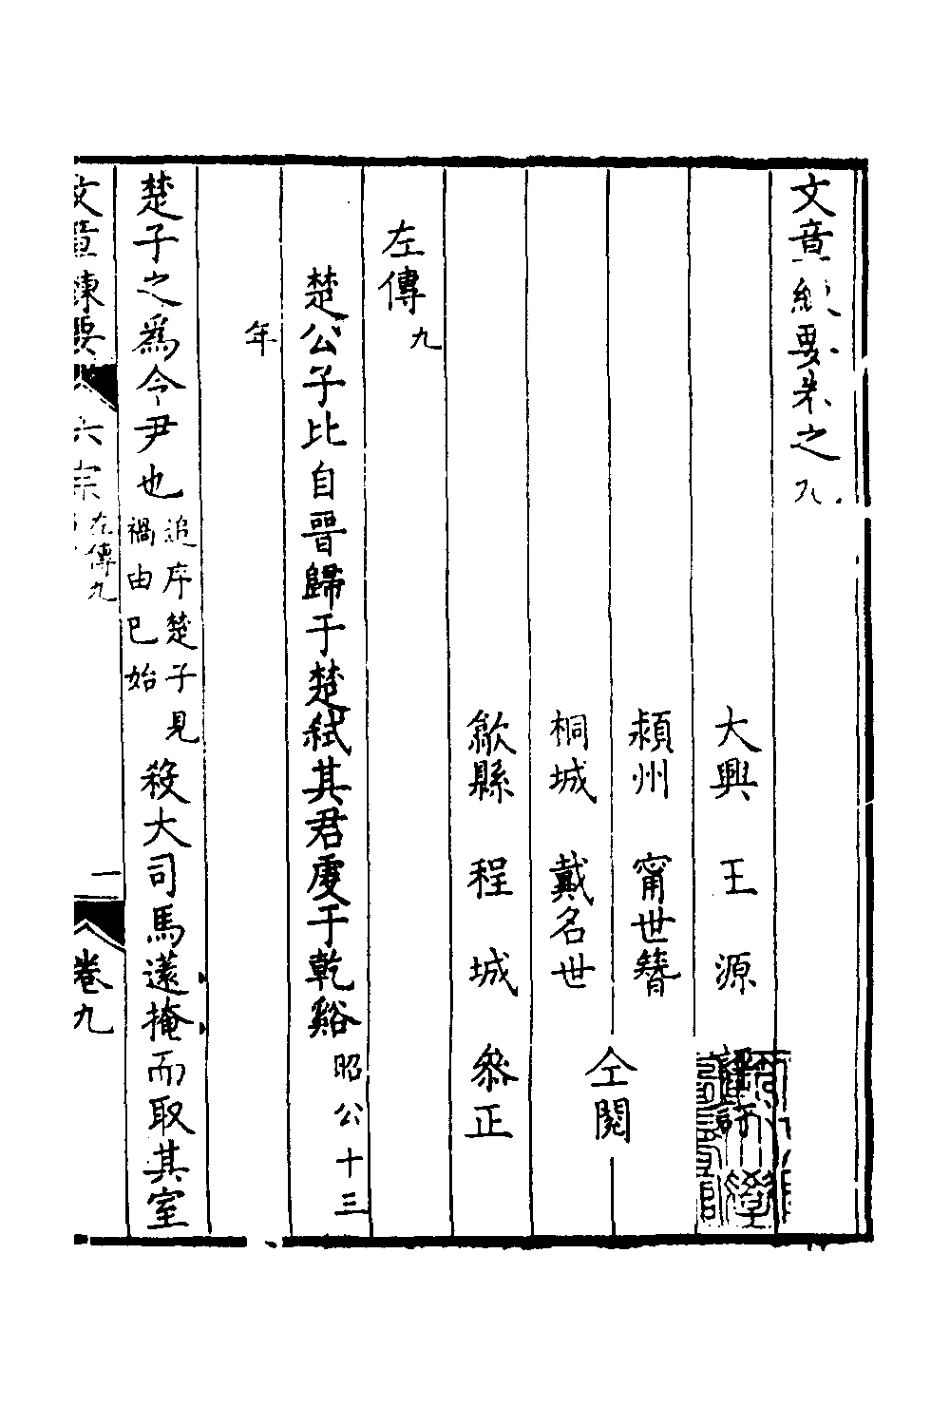 文章練要卷之九
大興 王 源 評訂
潁州 甯世簪
桐城 戴名世 仝閱
歙縣 程 城 參正
左傳九
楚公子比自晉歸于楚弒其君虔于乾谿昭公十三
年
楚子之爲令尹也追序楚子見禍由已始殺大司馬薳掩而取其室
文章練要 六宗 左傳九 一 卷九